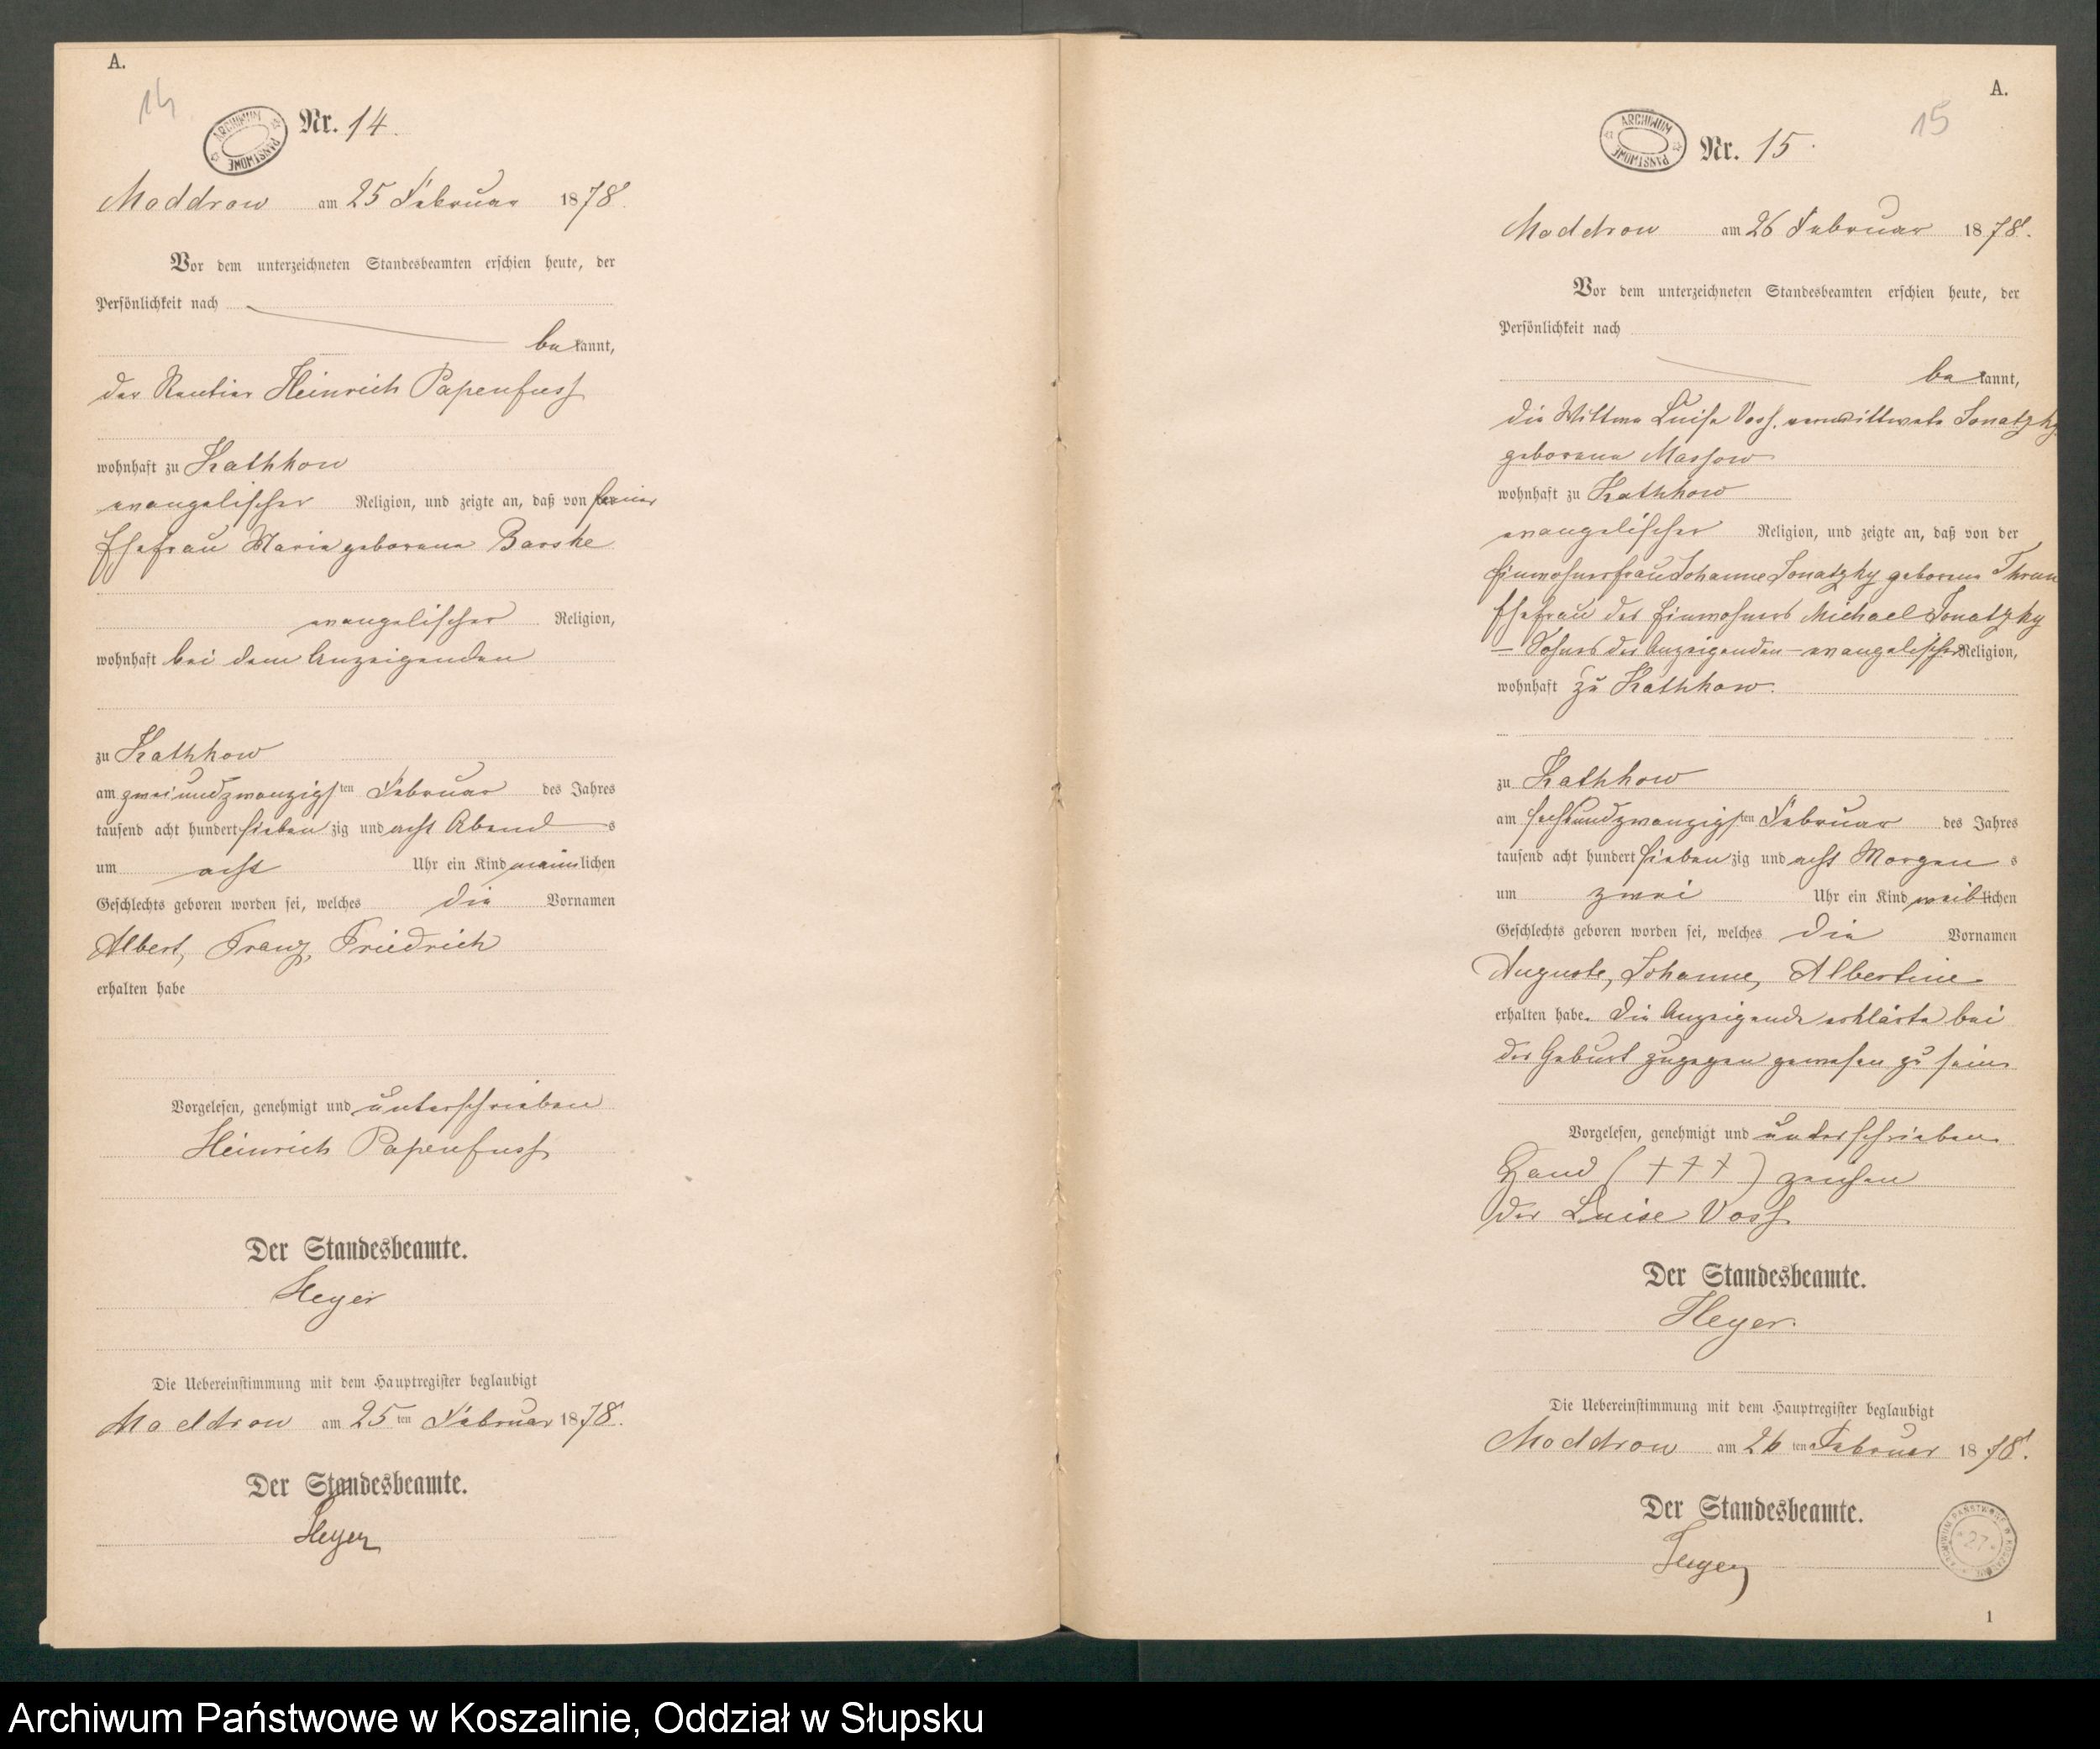 A.
14
ARCHIWUM PAŃSTWOWE
Nr. 14.
Moddrow am 25 Februar 1878.
Vor dem unterzeichneten Standesbeamten erschien heute, der
Persönlichkeit nach
bekannt,
der Rentier Heinrich Papenfuss
wohnhaft zu Kathkow
evangelischer Religion, und zeigte an, daß von seiner
Ehefrau Marie geborene Barske
evangelischer Religion,
wohnhaft bei dem Anzeigenden
zu Kathkow
am zweiundzwanzigsten Februar des Jahres
tausend acht hundert siebenzig und acht Abends
um acht Uhr ein Kind männlichen
Geschlechts geboren worden sei, welches die Vornamen
Albert, Franz, Friedrich
erhalten habe
Vorgelesen, genehmigt und unterschrieben
Heinrich Papenfuss
Der Standesbeamte.
Heyer
Die Uebereinstimmung mit dem Hauptregister beglaubigt
Moddrow am 25ten Februar 1878.
Der Standesbeamte.
Heyer
A.
15
ARCHIWUM PAŃSTWOWE
Nr. 15.
Moddrow am 26 Februar 1878.
Vor dem unterzeichneten Standesbeamten erschien heute, der
Persönlichkeit nach
bekannt,
die Wittwe Luise Voss, verwittwete Jonatzky
geborene Massow
wohnhaft zu Kathkow
evangelischer Religion, und zeigte an, daß von der
Einwohnerfrau Johanne Jonatzky geborene
Ehefrau des Einwohners Michael Jonatzky
– Sohnes der Anzeigenden – evangelischer Religion,
wohnhaft zu Kathkow.
zu Kathkow
am sechsundzwanzigsten Februar des Jahres
tausend acht hundert siebenzig und acht Morgens
um zwei Uhr ein Kind weiblichen
Geschlechts geboren worden sei, welches die Vornamen
Auguste, Johanne, Albertine
erhalten habe. Die Anzeigende erklärte bei
der Geburt zugegen gewesen zu sein.
Vorgelesen, genehmigt und unterschrieben
Hand (+++) zeichen
der Luise Voss
Der Standesbeamte.
Heyer.
Die Uebereinstimmung mit dem Hauptregister beglaubigt
Moddrow am 26ten Februar 1878.
Der Standesbeamte.
Heyer
ARCHIWUM PAŃSTWOWE W KOSZALINIE
27
1
Archiwum Państwowe w Koszalinie, Oddział w Słupsku